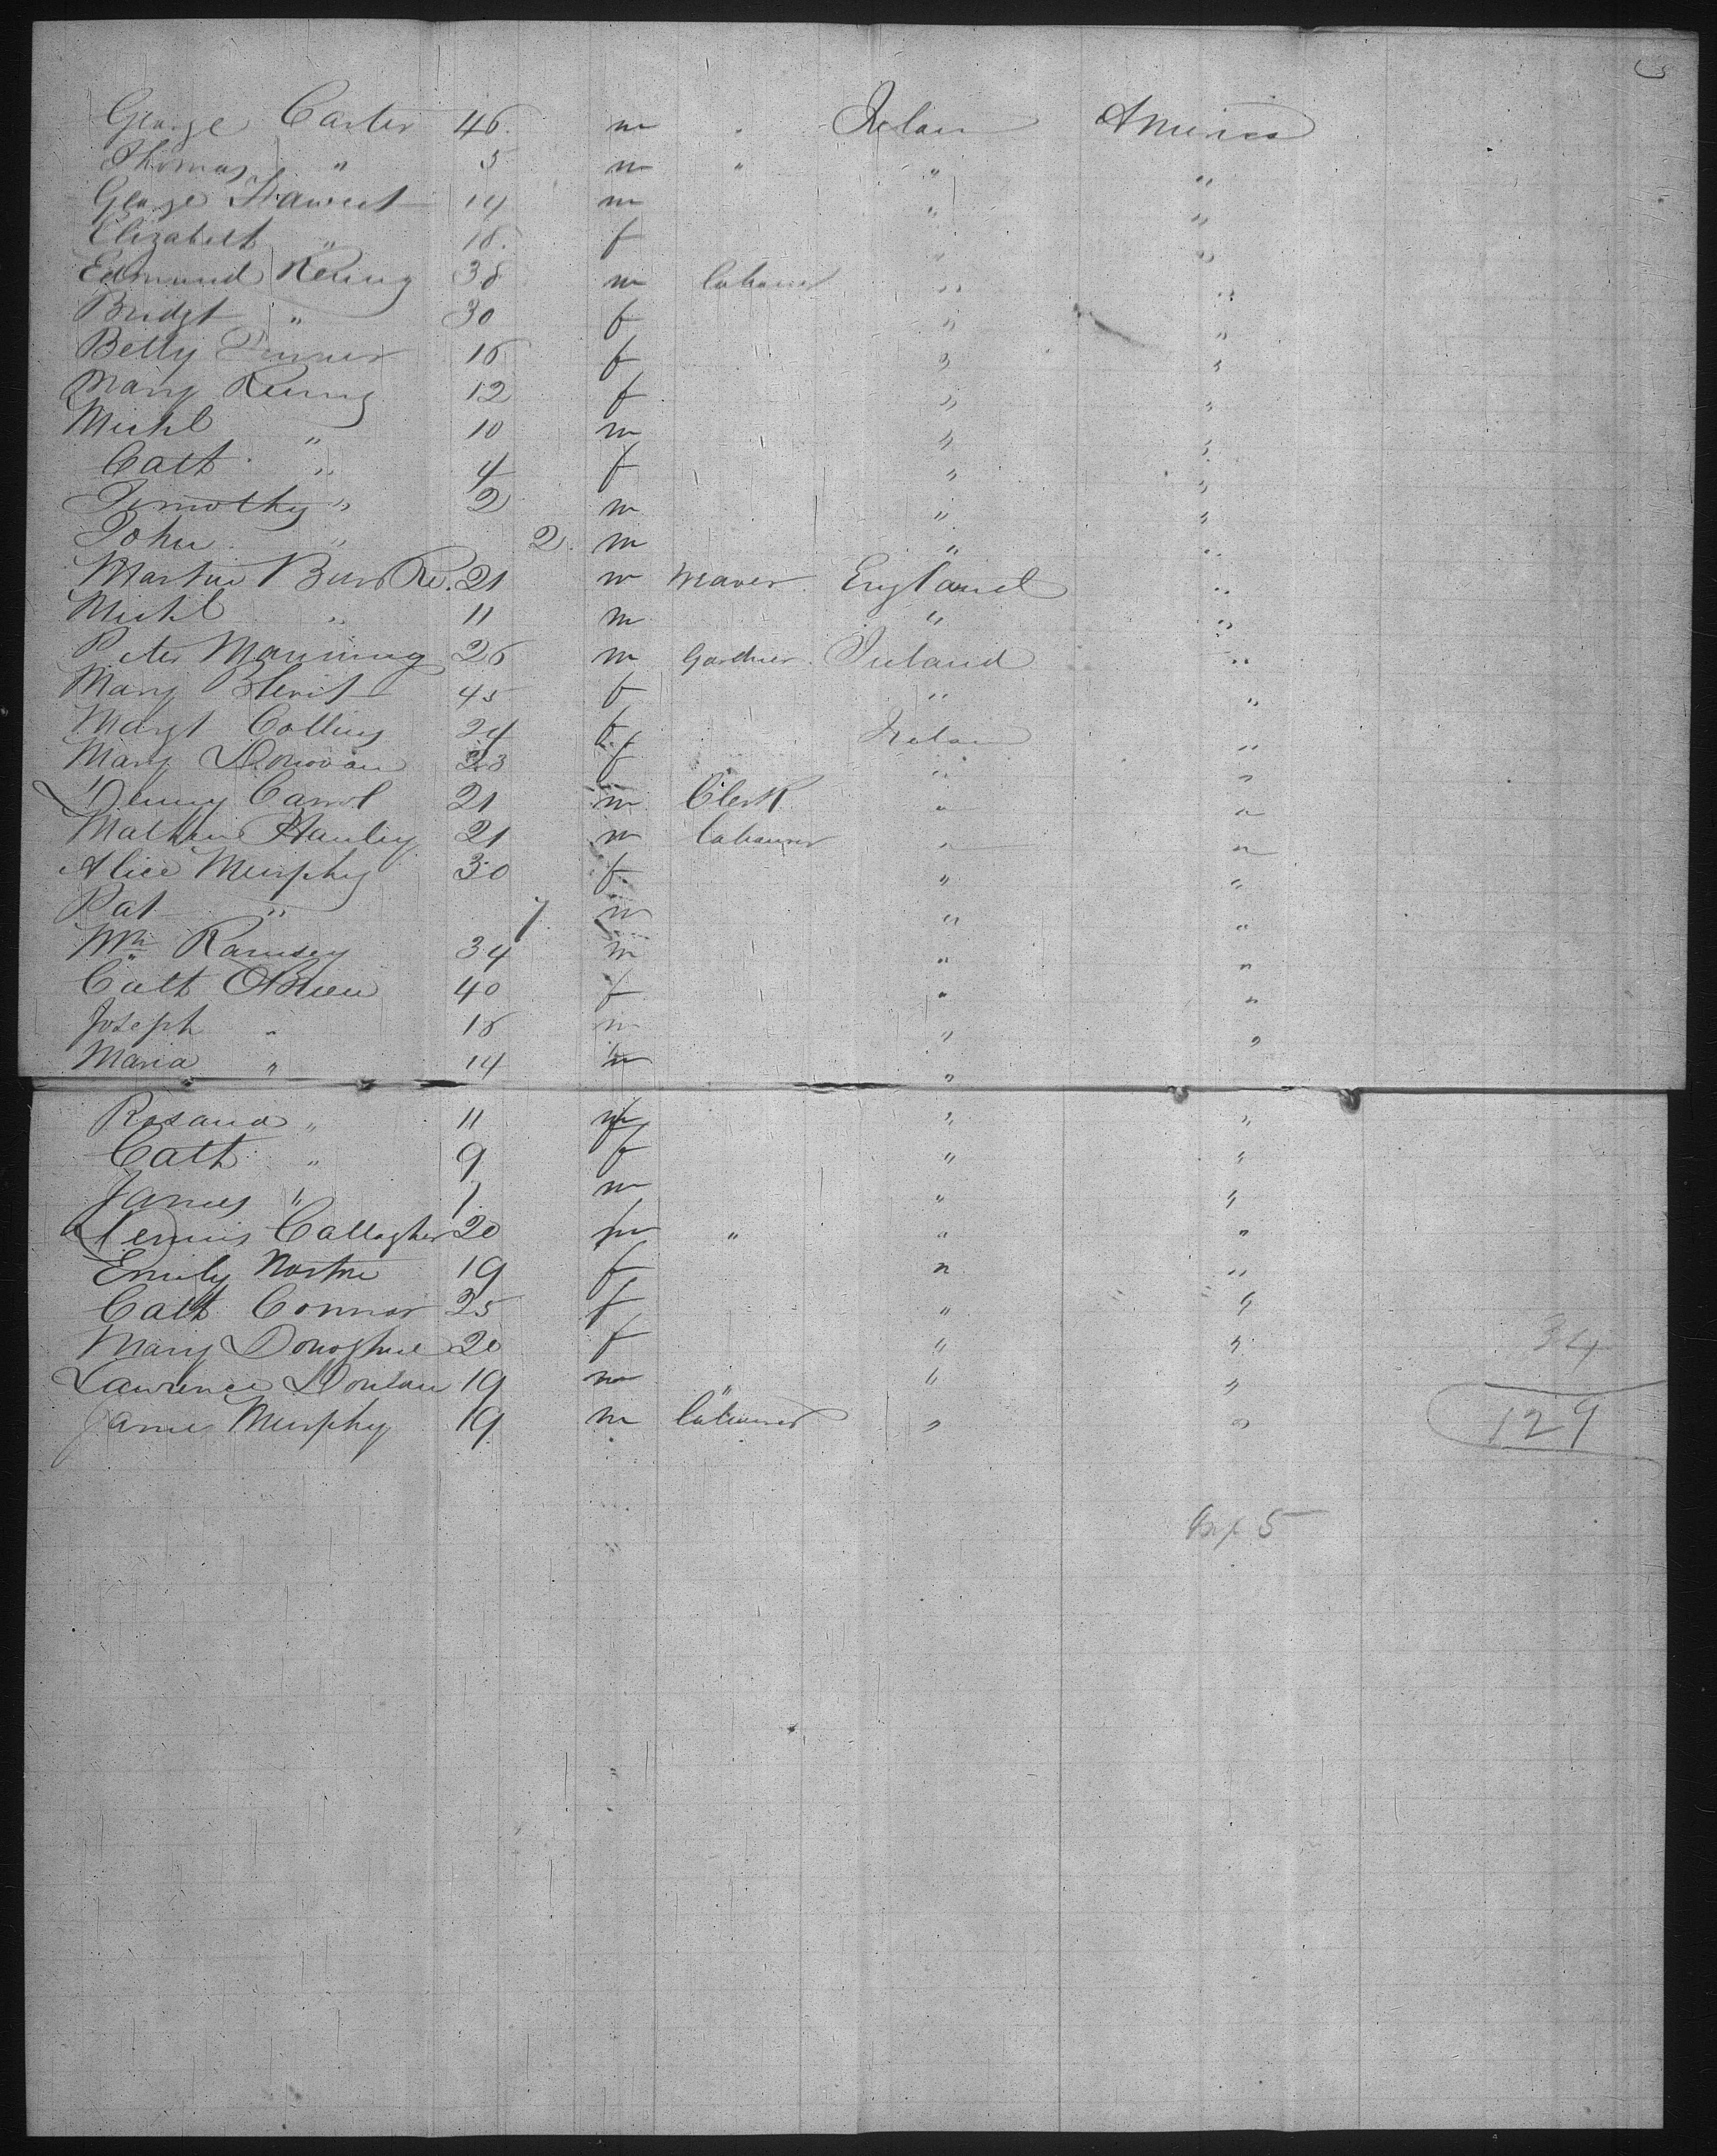 George Carter 46 m " Irelan America
Thomas " 5 m " " "
George 14 m " "
Elizabeth " 18 f " "
Edmund Keting 38 m labourer " "
Bridgt " 30 f " "
Betty 16 f " "
Mary Keting 12 f " "
Michl " 10 m " "
Cath " 4 f " "
Timothy " 2 m " "
John " 2 m "
Martin Burke 21 m Weaver England "
Michl " 11 m " "
Peter Manning 26 m Gardner Ireland "
Mary 45 f " "
Margt Collins 24 f Irelan "
Mary Donovan 23 f " "
Denny Carrol 21 m Clerk " "
Mathew Hanley 21 m labourer " "
Alice Murphy 30 f " "
Pat " 7 m " "
Wm Ramsey 34 m " "
Cath OBrien 40 f " "
Joseph " 18 m " "
Maria " 14 " "
Rosana " 11 f " "
Cath " 9 f " "
James " 7 m " "
Dennis Callaghan 20 m " " "
Emily 19 f " "
Cath Connor 25 f " "
Mary Donoghue 20 f " " 34
Lawrence Donlan 19 m " " "
James Murphy 19 m labourer " " 129
5